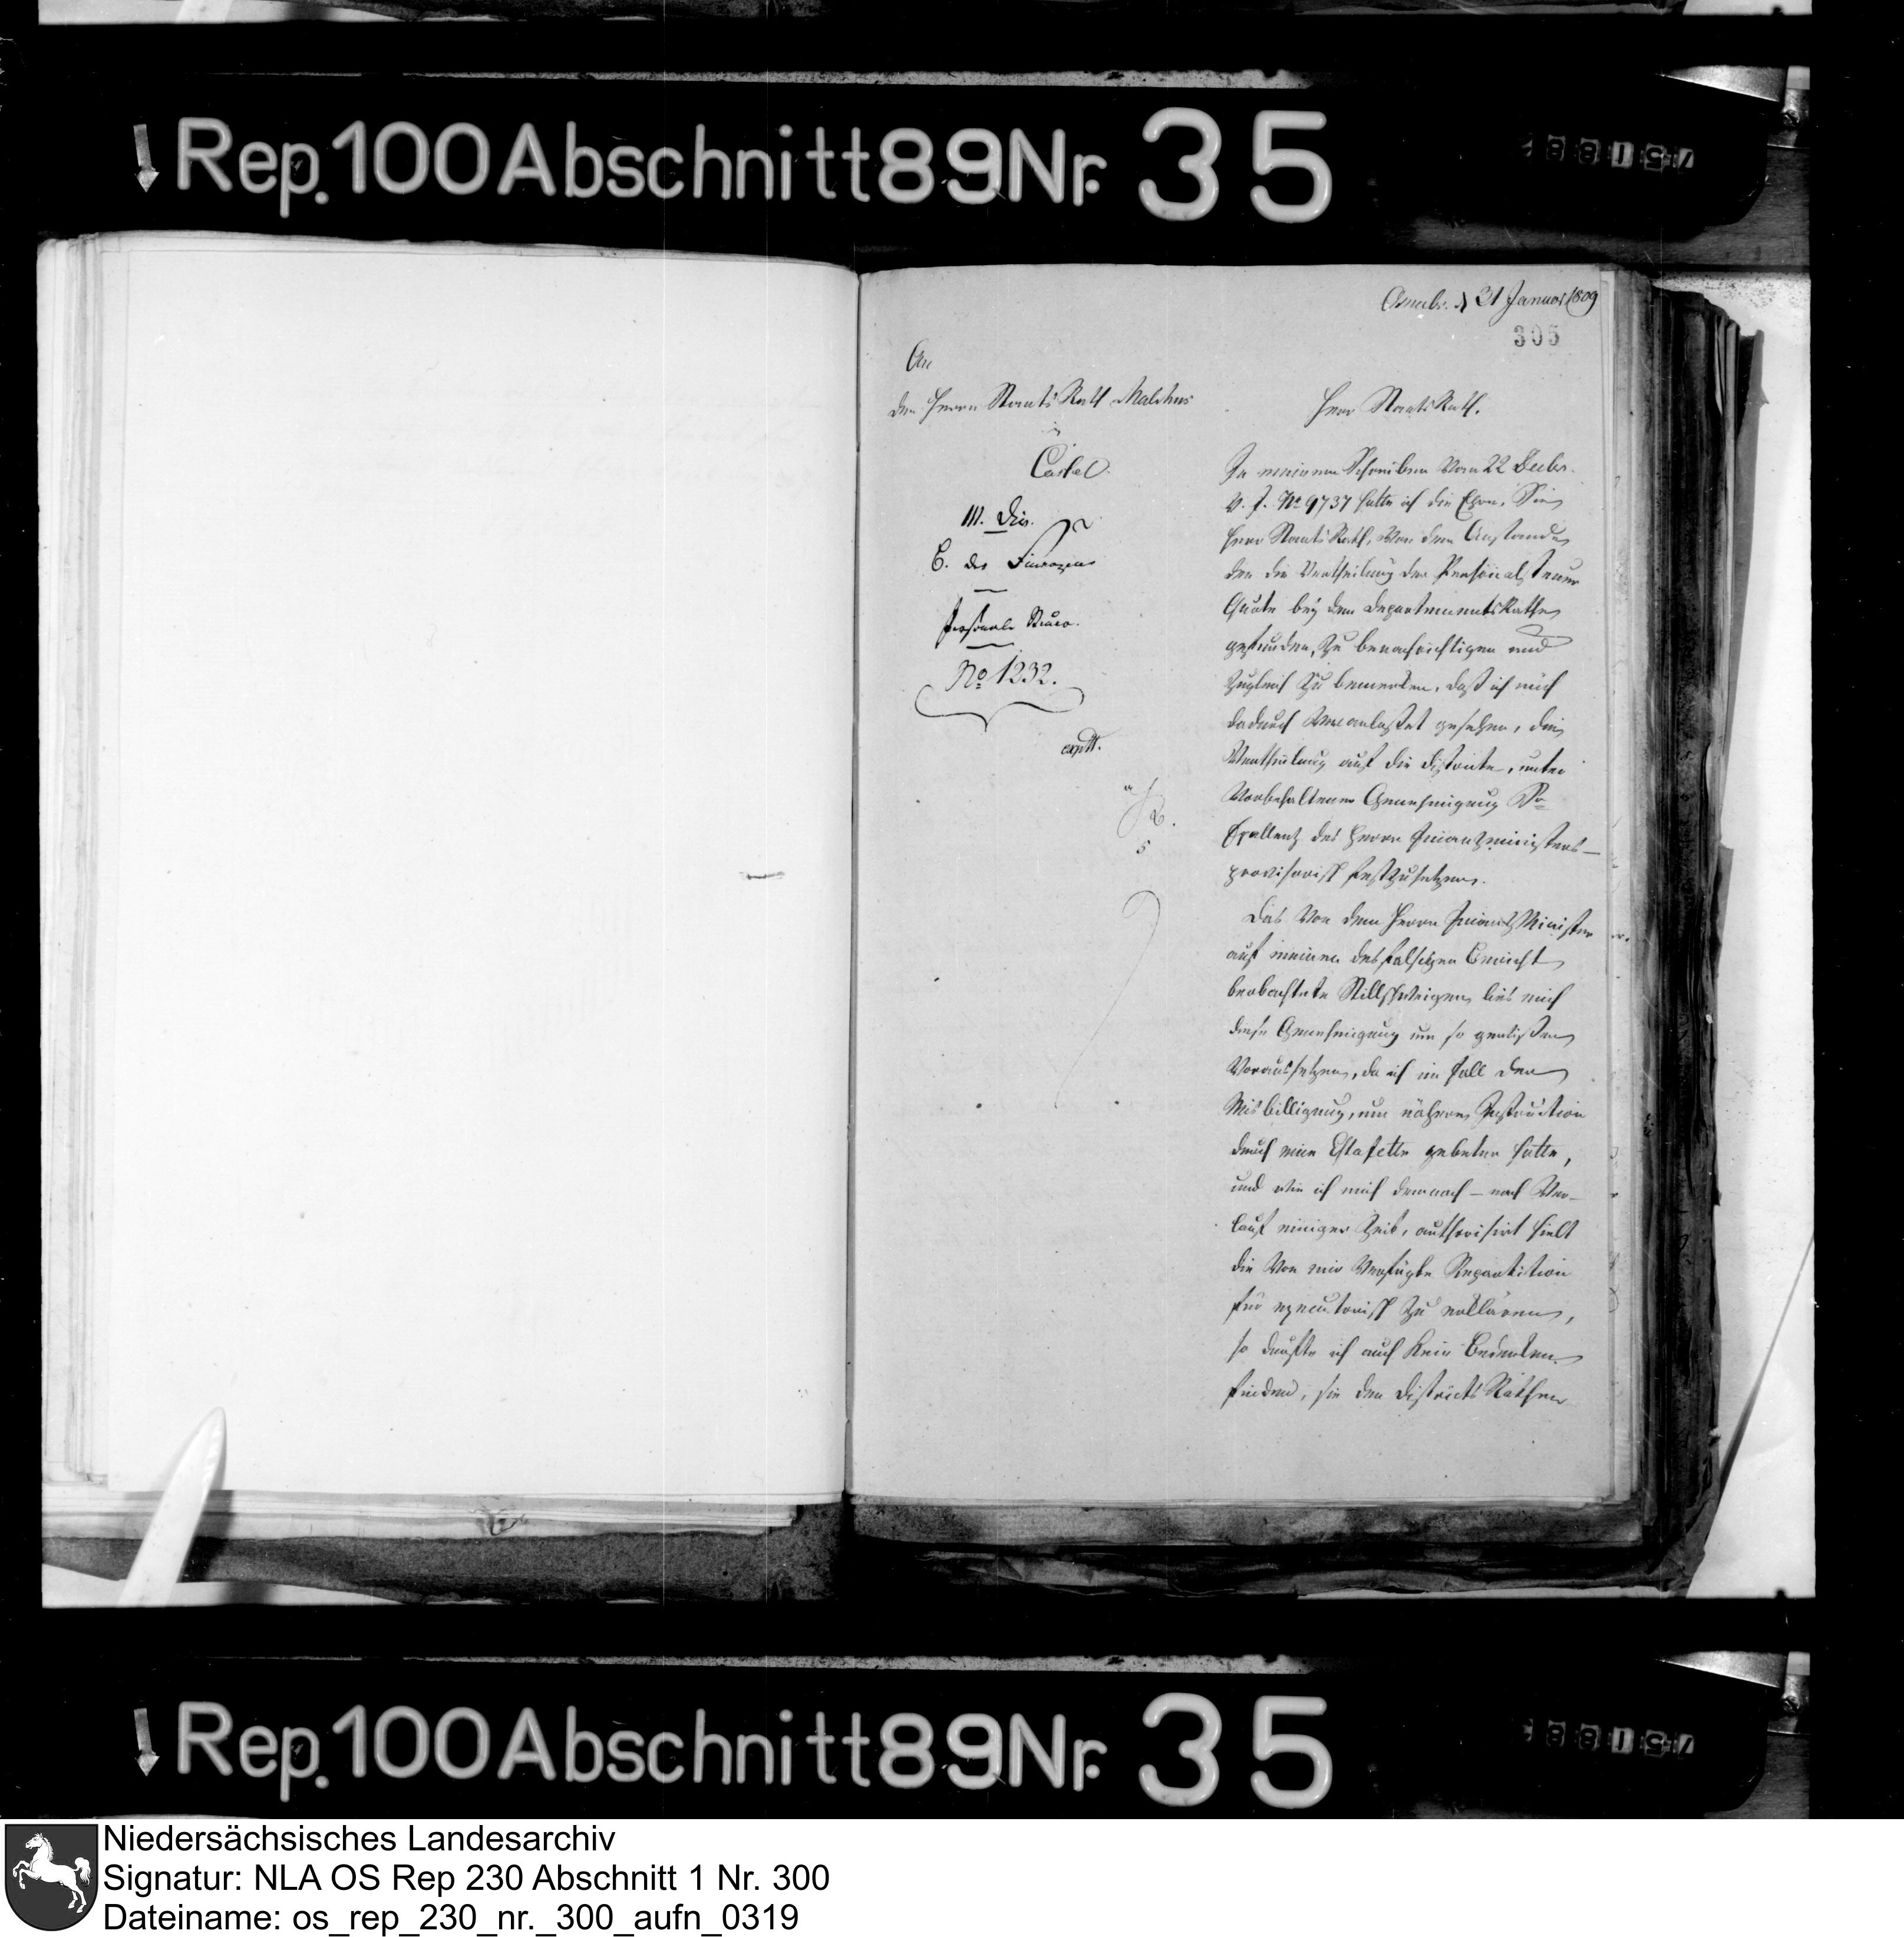 Rep. 100 Abschnitt 89 Nr. 35
Osnabr. d 31 Januar 1809
305
An
den Herrn StaatsRath Malchus
in
Cassel.
III. Div.
B. der Finanzen
Personal Steuer.
No 1232.
expdt.
Herr StaatsRath.
In meinem Schreiben vom 22 Decbr.
v. J. No 9737 hatte ich die Ehre, Sie
Herr StaatsRath, von dem Anstande
den die Vertheilung der Personal Steuer
Quote bey dem DepartementsRathe
gefunden, zu benachrichtigen und
zugleich zu bemerken, daß ich mich
dadurch veranlaßet gesehen, die
Vertheilung auf die Districte, unter
vorbehaltener Genehmigung Sr
Excellenz des Herrn Finanzministers
provisorisch festzusetzen.
Das von dem Herrn FinanzMinister
auf meinen desfalsigen Bericht
beobachtete Stillschweigen lies mich
diese Genehmigung um so gewißer
voraussetzen, da ich im Fall der
Misbilligung, um nähere Instruction
durch eine Estafette gebeten hatte,
und wie ich mich demnach – nach Ver-
lauf einiger Zeit, authorisirt hielt
die von mir verfügte Repartition
für executorisch zu erklären,
so durfte ich auch kein Bedenken
finden, sie den Districts Räthen
Rep. 100 Abschnitt 89 Nr. 35
Niedersächsisches Landesarchiv
Signatur: NLA OS Rep 230 Abschnitt 1 Nr. 300
Dateiname: os_rep_230_nr._300_aufn_0319